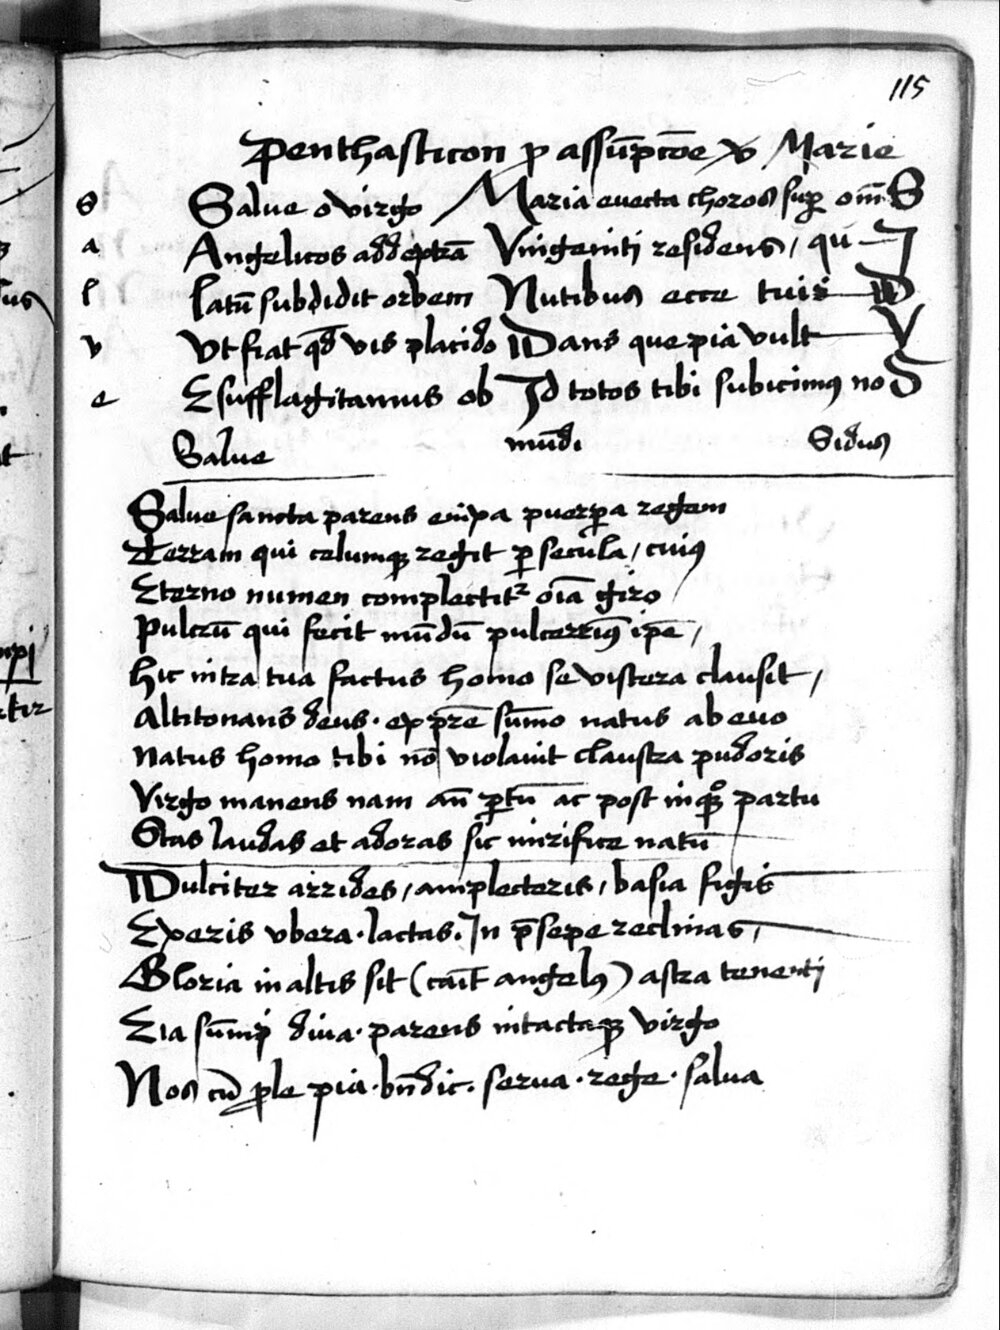 115
Penthasticon p assūpcōe v Marie
S Salve o virgo Maria evecta choros sup om̄S
a Angelicos ad dextrā Vnigeniti residens, quI
l latū subdidit orbem Nutibus ecce tuis D
v Vt fiat qd vis placido Dans que pia vult V
e Esufflagitamus ob Id totos tibi subicimus noS
Salve mūdi Sidus
Salve sancta parens enixa puerpa regem
Terram qui celumq regit p secula, cuius
Eterno numen complectitr oīa giro
Pulcrū qui fecit mūdū pulcerrimus ipē,
hic intra tua factus homo se viscera clausit,
Altitonans deus. ex pr̄e sūmo natus ab evo
Natus homo tibi nō violavit claustra pudoris
Virgo manens nam an̄ ptū ac post inq partu
Stas laudas et adoras sic mirifice natū
Dulciter arrides, amplecteris, basia figis
Exeris vbera. lactas. In p̄sepe reclinas,
Gloria in altis sit (cāit angelus) astra tenenti
Eia sūmi diva. parens intactaq virgo
Nos cū ple pia. bn̄dic. serva. rege. salva